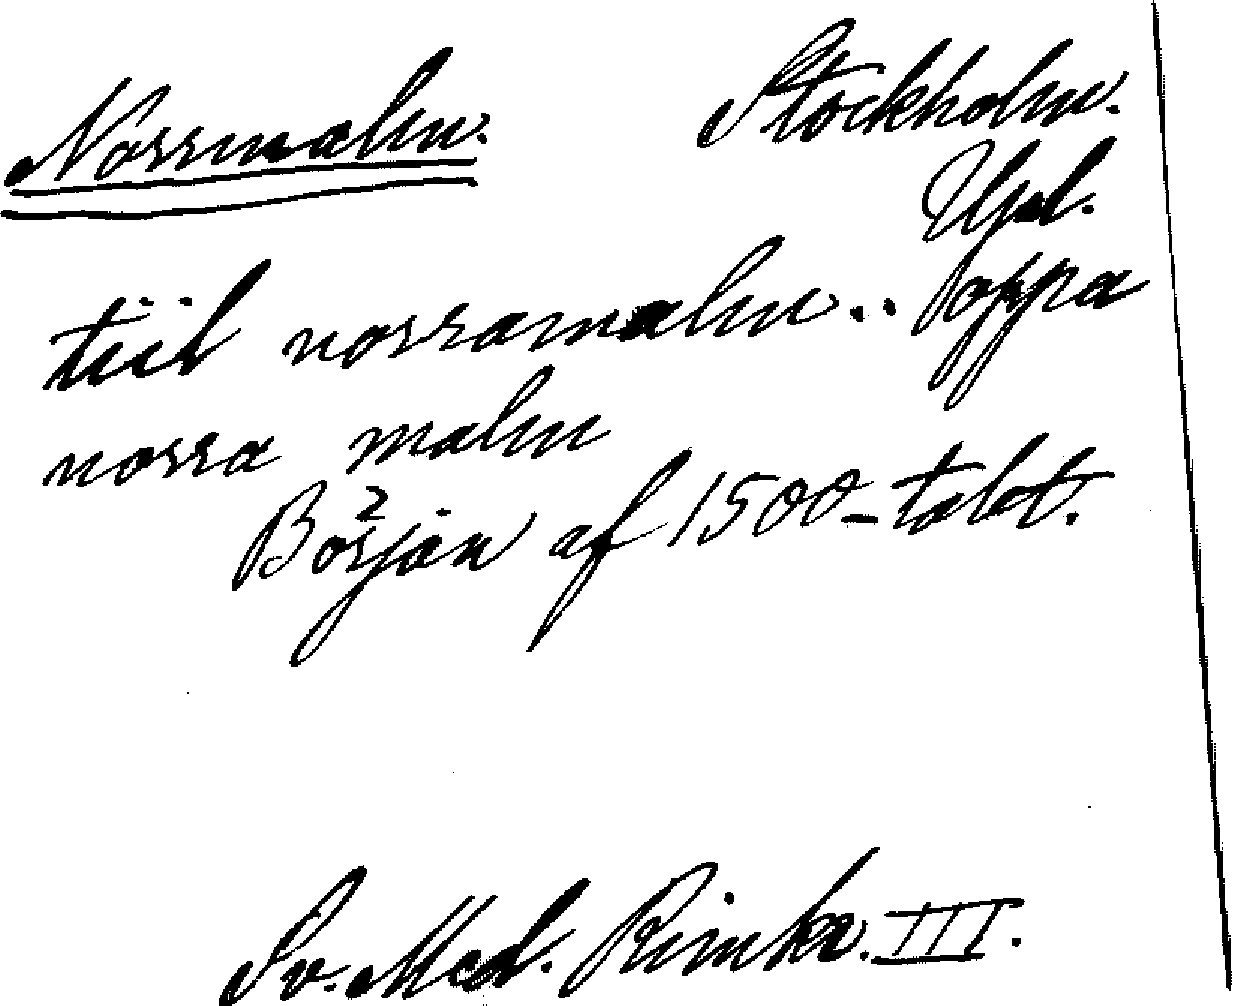 Norrmalm. Stockholm.
Upl.
tiil norramalm.. oppa
norra malm
Början af 1500-talet.
Sv. Med. Rimkr. III.